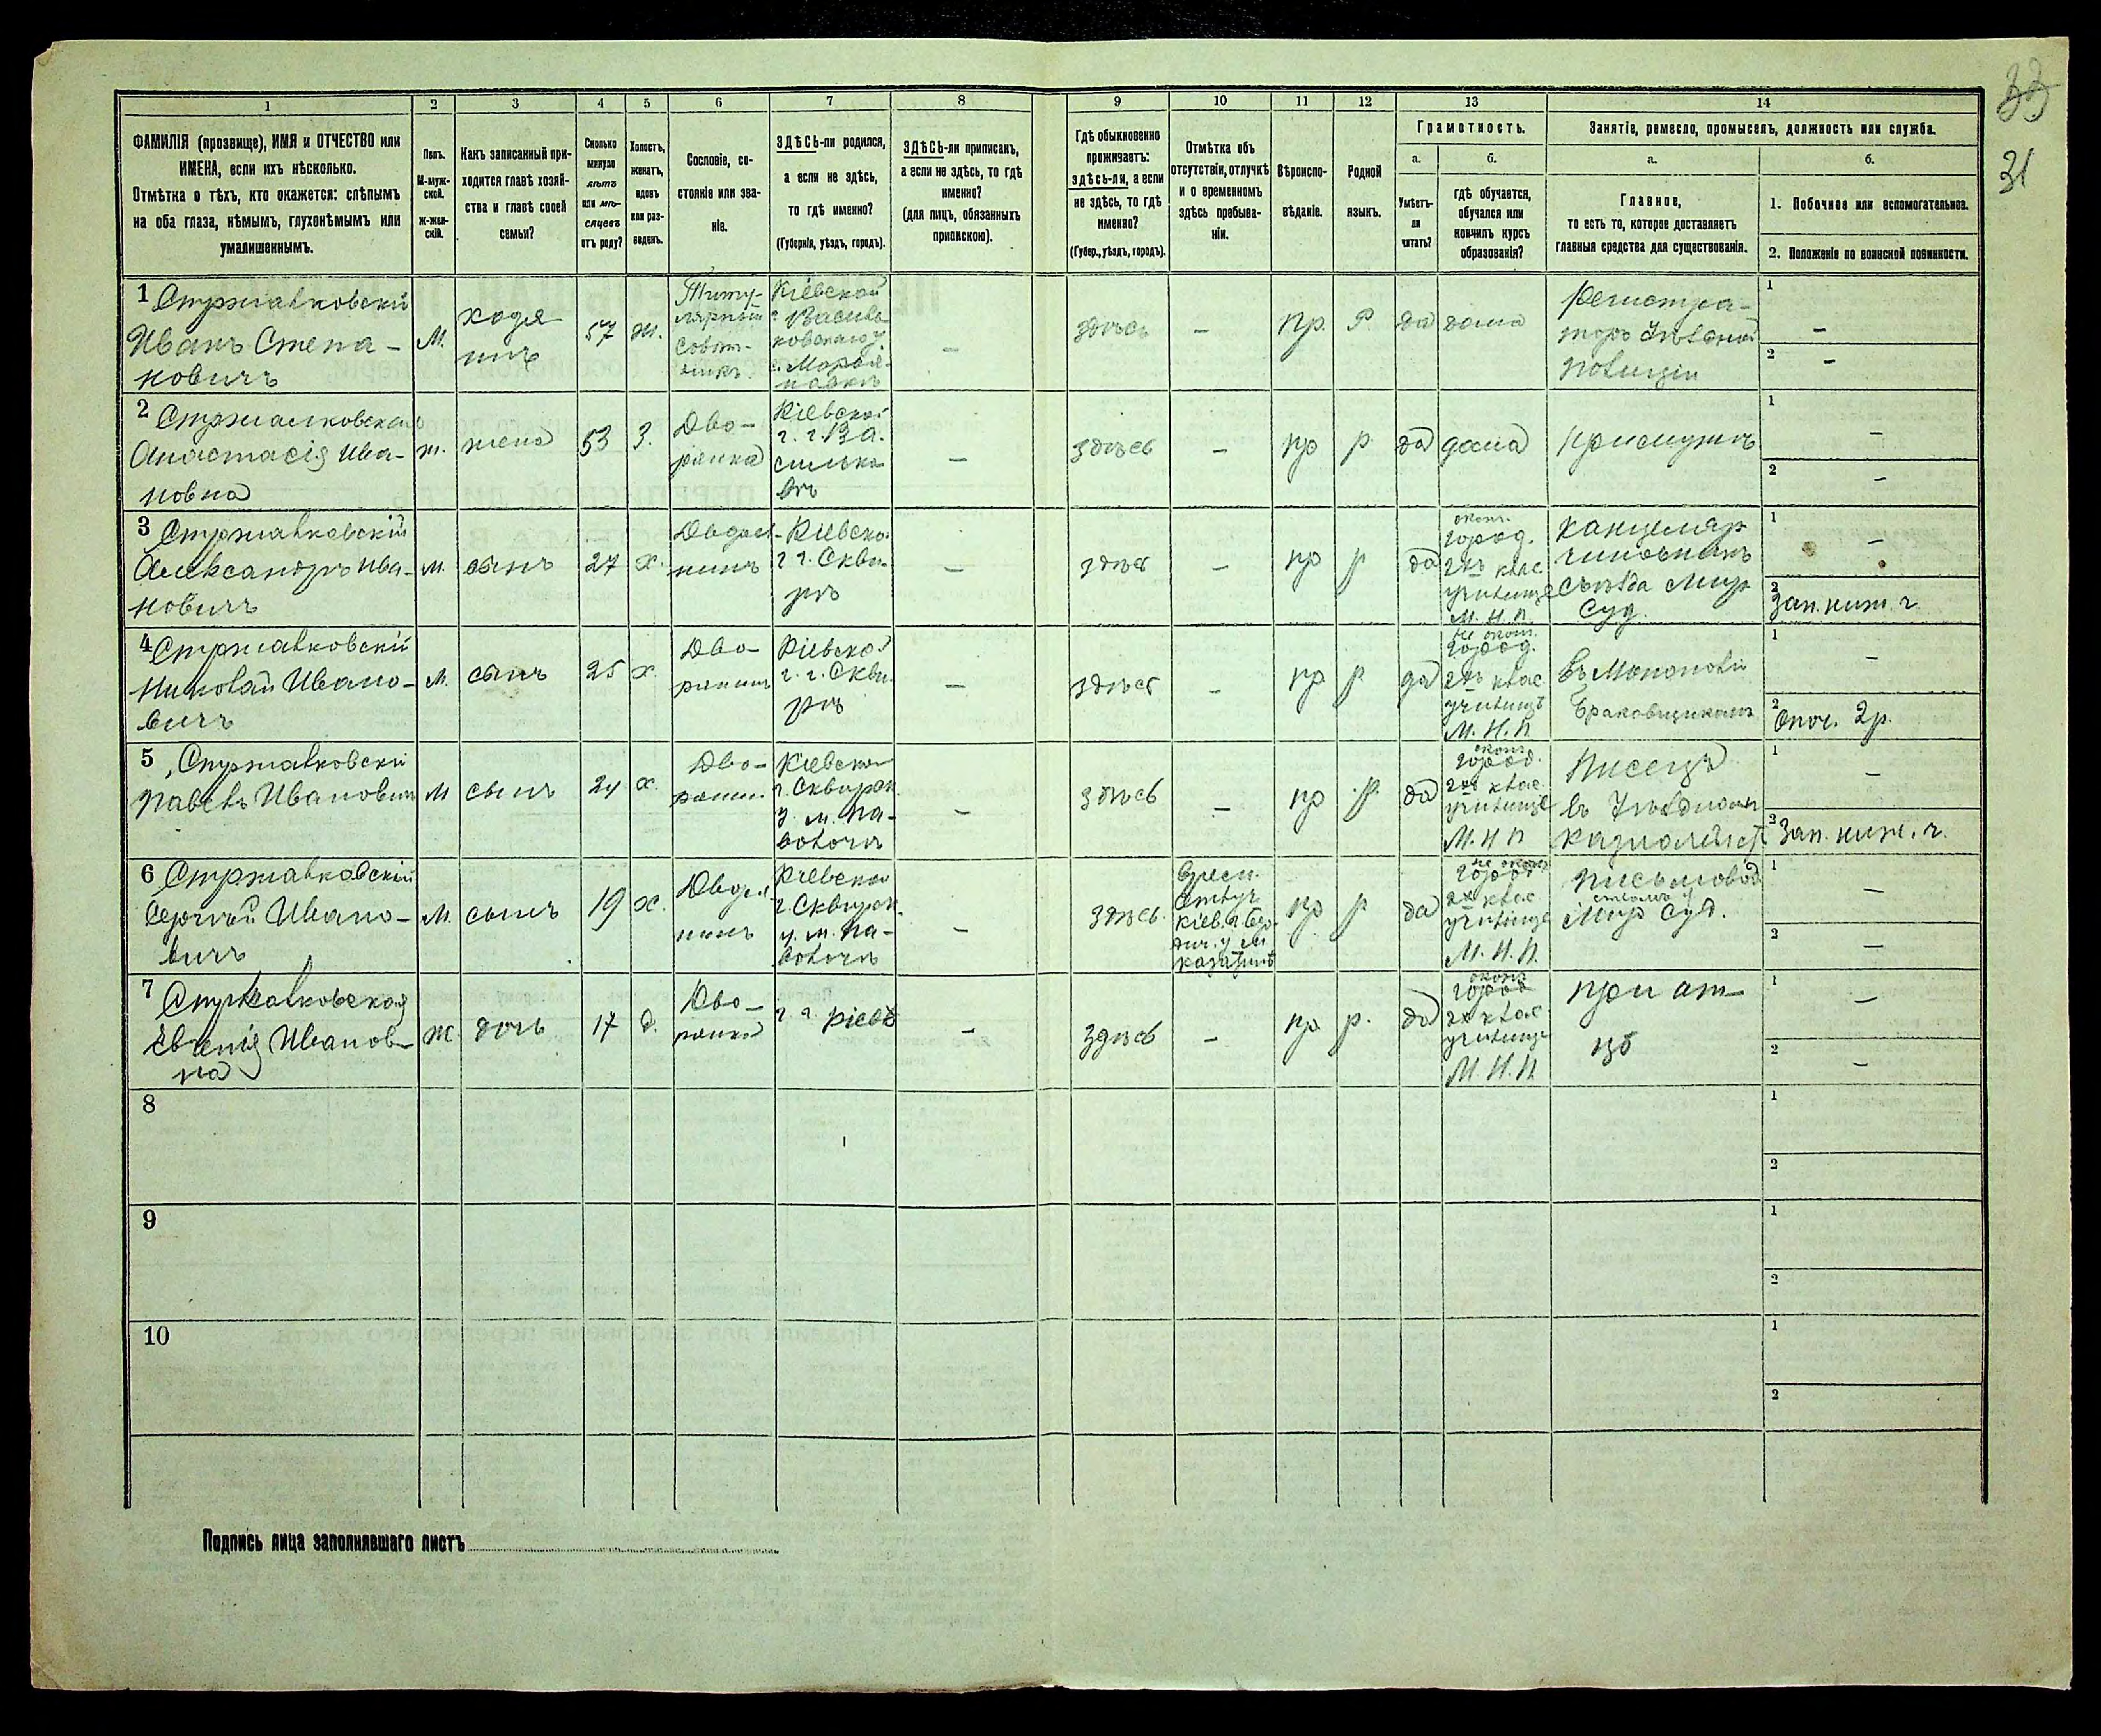 33
31
1
2
3
4
5
6
7
8
9
10
11
12
13
14
ФАМИЛІЯ (прозвище), ИМЯ и ОТЧЕСТВО или
ИМЕНА, если ихъ нѣсколько.
Отмѣтка о тѣхъ, кто окажется: слѣпымъ
на оба глаза, нѣмымъ, глухонѣмымъ или
умалишеннымъ.
Полъ.
М-муж-
ской.
Ж-жен-
скій.
Какъ записанный при-
ходится главѣ хозяй-
ства и главѣ своей
семьи?
Сколько
минуло
лѣтъ
или мѣ-
сяцевъ
отъ роду?
Холостъ,
женатъ,
вдовъ
или раз-
веденъ.
Сословіе, со-
стояніе или зва-
ніе.
ЗДѢСЬ-ли родился,
а если не здѣсь,
то гдѣ именно?
(Губернія, уѣздъ, городъ).
ЗДѢСЬ-ли приписанъ,
а если не здѣсь, то гдѣ
именно?
(для лицъ, обязанныхъ
припискою).
Гдѣ обыкновенно
проживаетъ:
здѣсь-ли, а если
не здѣсь, то гдѣ
именно?
(Губер., уѣздъ, городъ).
Отмѣтка объ
отсутствіи, отлучкѣ
и о временномъ
здѣсь пребыва-
ніи.
Вѣроиспо-
вѣданіе.
Родной
языкъ.
Грамотность.
а.
б.
Умѣетъ-
ли
читать?
гдѣ обучается,
обучался или
кончилъ курсъ
образованія?
Занятіе, ремесло, промыселъ, должность или служба.
а.
б.
Главное,
то есть то, которое доставляетъ
главныя средства для существованія.
1. Побочное или вспомогательное.
2. Положеніе по воинской повинности.
1 Стржалковскій
Иванъ Степа-
новичъ
М.
хозя
инъ
57
ж.
Титу-
лярный
Совѣт-
никъ.
Кіевской
г. Василь
ковскаго у.
с. Марья-
новкѣ
–
здѣсь
–
пр.
Р.
да
дома
Регистра-
торъ Уѣздной
Полиціи
1
–
2
–
2 Стржалковская
Анастасія Ива-
новна
ж.
жена
53
З.
Дво-
рянка
Кіевской
г. г. Ва-
силько
вѣ
–
здѣсь
–
пр
р.
да
дома
при мужѣ
1
–
2
–
3 Стржалковскій
Александръ Ива-
новичъ
м.
сынъ
27
х.
Дворя-
нинъ
Кіевской
г г. Скви-
рѣ
–
здѣсь
–
пр
р
да
оконч.
город.
2хъ клас
училище
М. Н. П.
Канцеляр
чиновникъ
Съѣзда Мир
Суд.
1
–
2
Зап. ниж. ч.
4 Стржалковскій
Николай Ивано-
вичъ
м.
сынъ
25
х.
Дво-
рянинъ
Кіевской
г. г. Скви-
рѣ
–
здѣсь
–
пр
р
да
не оконч.
город.
2хъ клас
училищѣ
М. Н. П
въ Монополіи
Браковщикомъ
1
–
2
Опол. 2 р.
5 Стржалковскій
Павелъ Ивановичъ
м
сынъ
24
х.
Дво-
рянин.
Кіевской
г. Сквирск
у. м. Па-
волочи
–
здѣсь
–
пр
р.
да
оконч
город.
2хъ клас
училище
М. Н П
Писецъ
въ Уѣздномъ
Казначейст
1
–
2
Зап. ниж. ч.
6 Стржалковскій
Сергѣй Ивано-
вичъ
м.
сынъ
19
х.
Дворя
нинъ
Кіевской
г. Сквирск.
у. м. Па-
волочи
–
здѣсь.
Врем.
Отлуч
Кіев. г. Бер-
дич. у м
Казатинѣ
пр
р
да
не оконч
город
2х клас
училище
М. Н. П.
письмовод
ствомъ
Мир Суд.
1
–
2
–
7 Стржалковская
Евгенія Иванов-
на
Ж
дочь
17
д.
Дво-
рянка
г г. Кіевѣ
–
здѣсь
–
пр.
р.
да
оконч
город
2х клас
училище
М. Н. П.
при от-
цѣ
1
–
2
–
8
1
2
9
1
2
10
1
2
Подпись лица заполнявшаго листъ